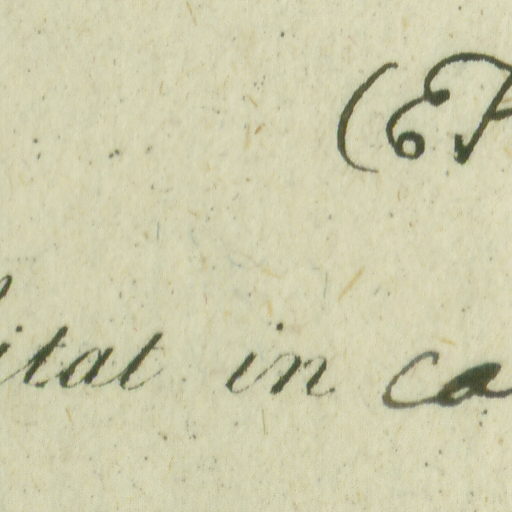 itat in ca